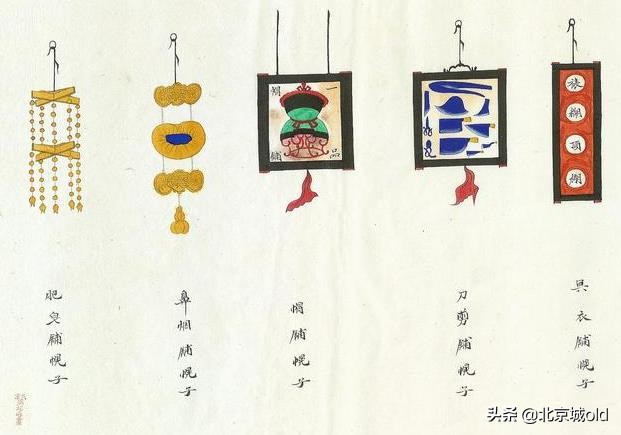 裱糊頂棚
一品
帽舖
冥衣舖幌子
刀剪舖幌子
帽舖幌子
鼻烟舖幌子
肥皂舖幌子
头条 @北京城old